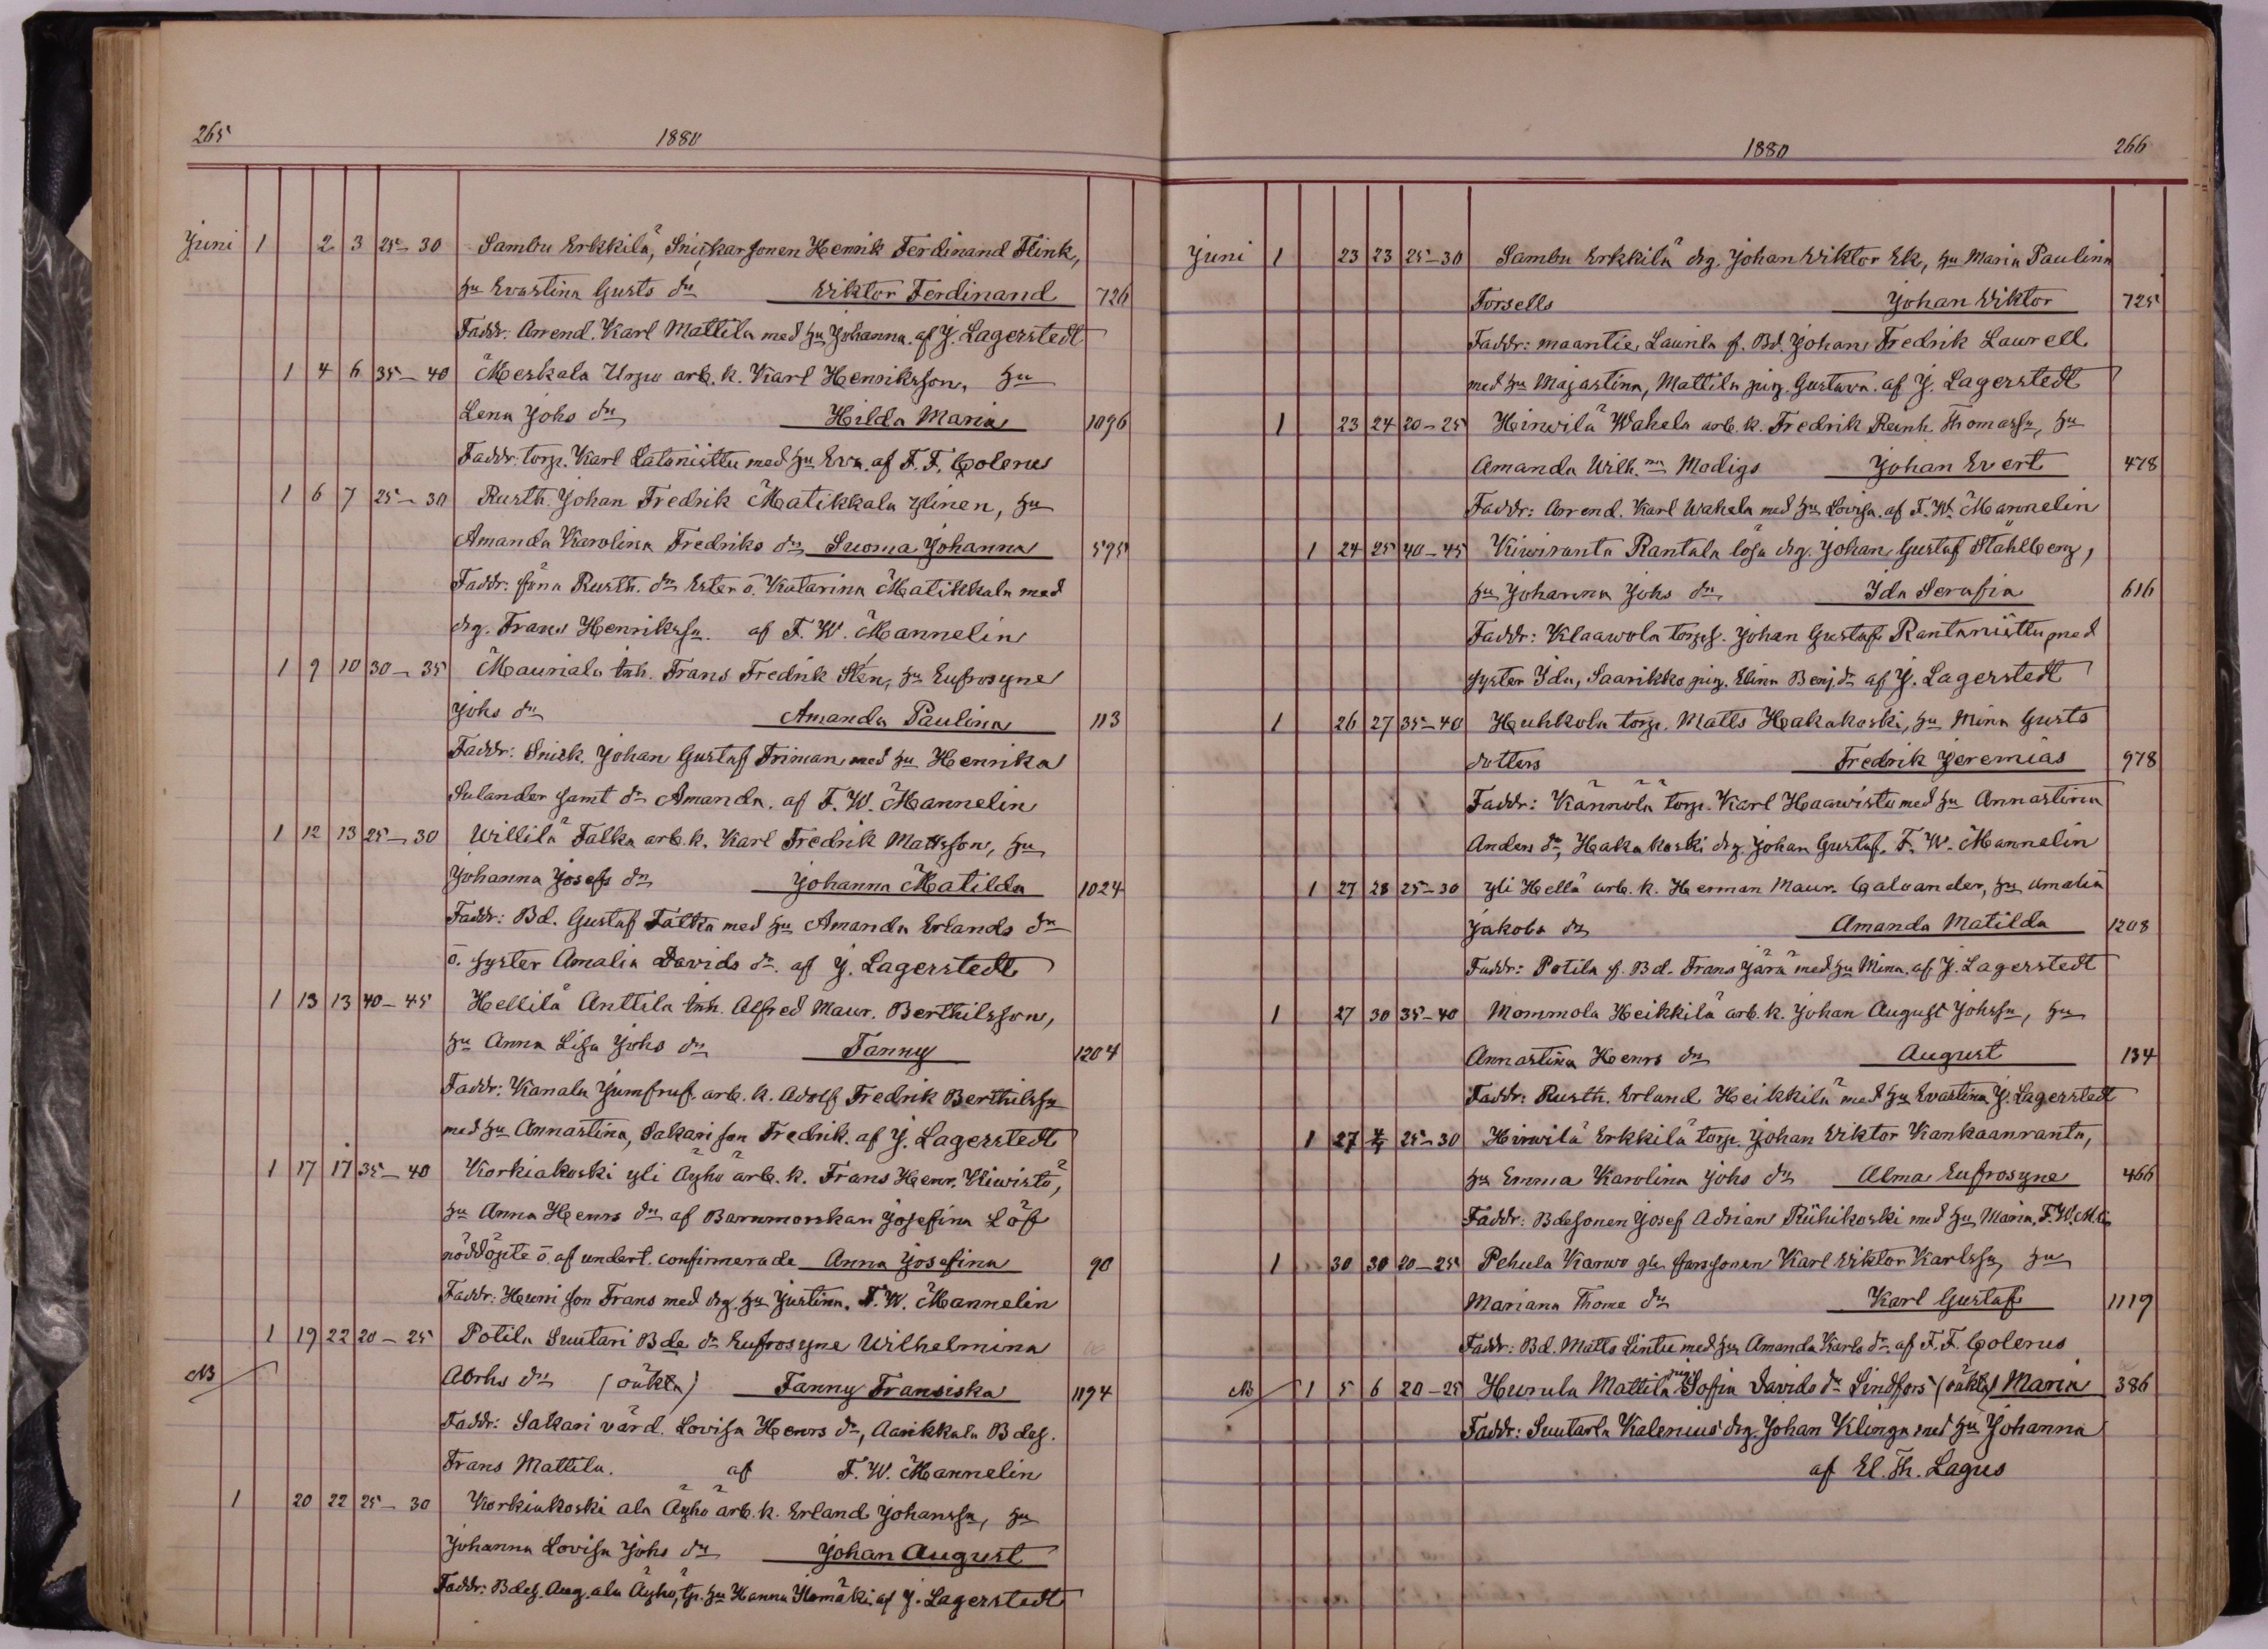 265 1880
Juni 1 2 3 25-30 Sambu Erkkilä, Snickarsonen Henrik Ferdinand Flink,
hu Evastina Gusts dr Viktor Ferdinand 726
Faddr: Arrend. Karl Mattila med hu Johanna. af J. Lagerstedt
1 4 6 35-40 Meskala Urpo arb. k. Karl Henriksson, hu
Lena Johs dr Hilda Maria 1096
Faddr: torp. Karl Latoniittu med hu Eva. af F. F. Colerus
1 6 7 25-30 Rusth. Johan Fredrik Matikkala ylinen, hu
Amanda Karolina Fredriks dr Suoma Johanna 595
Faddr: Rusth. dr Ester o. Katarina Matikkala med
drg. Frans Henrikssn. af F. W. Mannelin
1 9 10 30-35 Mauriala inh. Frans Fredrik Sten, hu Eufrosyne
Johs dr Amanda Paulina 113
Faddr: Snick. Johan Gustaf Friman med hu Henrika
Sulander samt dr Amanda. af F. W. Mannelin
1 12 13 25-30 Willilä Falka arb. k. Karl Fredrik Mattsson, hu
Johanna Josefs dr Johanna Matilda 1024
Faddr: Bd. Gustaf Falka med hu Amanda Erlands dr
o. syster Amalia Davids dr. af J. Lagerstedt
1 13 13 40-45 Hellilä Anttila inh. Alfred Maur. Berthilsson,
hu Anna Lisa Johs dr Fanny 1204
Faddr: Kanala Jumfruf. arb. k. Adolf Fredrik Berthilssn
med hu Annastina, Sakari son Fredrik. af J. Lagerstedt
1 17 17 35-40 Korkiakoski yli Äyhö arb. k. Frans Henr. Kiwistö,
hu Anna Henrs dr af Barnmorskan Josefina Löf
nöddöpte o. af undert. confirmerade Anna Josefina 90
Faddr: Heurri son Frans med drg. hu Justina. F. W. Mannelin
1 19 22 20-25 Potila Suutari Bde dr Eufrosyne Wilhelmina
NB Abrhs dr (oäkta) Fanny Fransiska 1194
Faddr: Sakari värd. Lovisa Henrs dr, Aarikkala Bdes.
Frans Mattila. af F. W. Mannelin
1 20 22 25-30 Korkiakoski ala Äyhö arb. k. Erland Johanssn, hu
Johanna Lovisa Johs dr Johan August
Faddr: Bdes. Aug. ala Äyhö, tp. hu Hanna Ilomäki af J. Lagerstedt
1880 266
Juni 1 23 23 25-30 Sambu Erkkilä drg. Johan Viktor Ek, hu Maria Paulina
Forsells Johan Viktor 725
Faddr: maantie Laurila f. Bd. Johan Fredrik Laurell
med hu Majastina, Mattila pig. Gustava. af J. Lagerstedt
1 23 24 20-25 Hirwilä Wahela arb. k. Fredrik Reinh. Thomassn, hu
Amanda Wilh. na Modigs Johan Evert 478
Faddr: Arrend. Karl Wahela med hu Lovisa. af F. W. Mannelin
1 24 25 40-45 Kiwiranta Rantala lösa drg. Johan Gustaf Ståhlberg,
hu Johanna Johs dr Ida Serafia 616
Faddr: Klaawola torps. Johan Gustaf Rantaniittu med
syster Ida, Saarikko pig. Elina Benj. dr af J. Lagerstedt
1 26 27 35-40 Huhkola torp. Matts Hakakoski, hu Mina Gusts
dotters Fredrik Jeremias 978
Faddr: Kännölä torp. Karl Haawisto med hu Annastina
Anders dr, Hakakoski drg. Johan Gustaf. F. W. Mannelin
1 27 28 25-30 yli Hellä arb. k. Herman Maur. Calvander, hu Amalia
Jakobs dr Amanda Matilda 1208
Faddr: Potila f. Bd. Frans Järä med hu Mina. af J. Lagerstedt
1 27 30 35-40 Mommola Heikkilä arb. k. Johan August Johssn, hu
Annastina Henrs dr August 134
Faddr: Rusth. Erland Heikkilä med hu Evastina J. Lagerstedt
1 27 25-30 Hirwilä Erkkilä torp. Johan Viktor Kankaanranta,
hu Emma Karolina Johs dr Alma Eufrosyne 466
Faddr: Bdesonen Josef Adrian Riihikoski med hu Maria, F. W. M-lin
1 30 30 20-25 Pehula Karwo gla farssonen Karl Viktor Karlssn, hu
Mariana Thoms dr Karl Gustaf 1119
Faddr: Bd. Matts Lintu med hu Amanda Karls dr. af F. F. Colerus
NB 1 5 6 20-25 Hurula Mattila pig. Sofia Davids dr Lindfors (oäkta) Maria 386
Faddr: Suutarla Kalenius drg. Johan Klinga med hu Johanna
af El. Th. Lagus